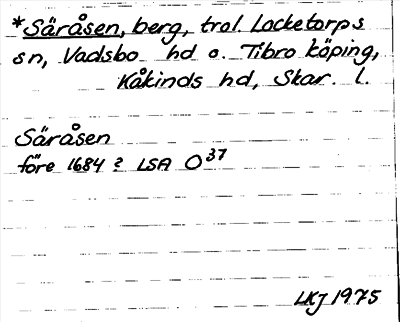 *Säråsen, berg, trol. Locketorps
sn, Vadsbo hd o. Tibro köping,
Kåkinds hd, Skar. l.
Säråsen
före 1684 ? LSA O37
LKJ 1975